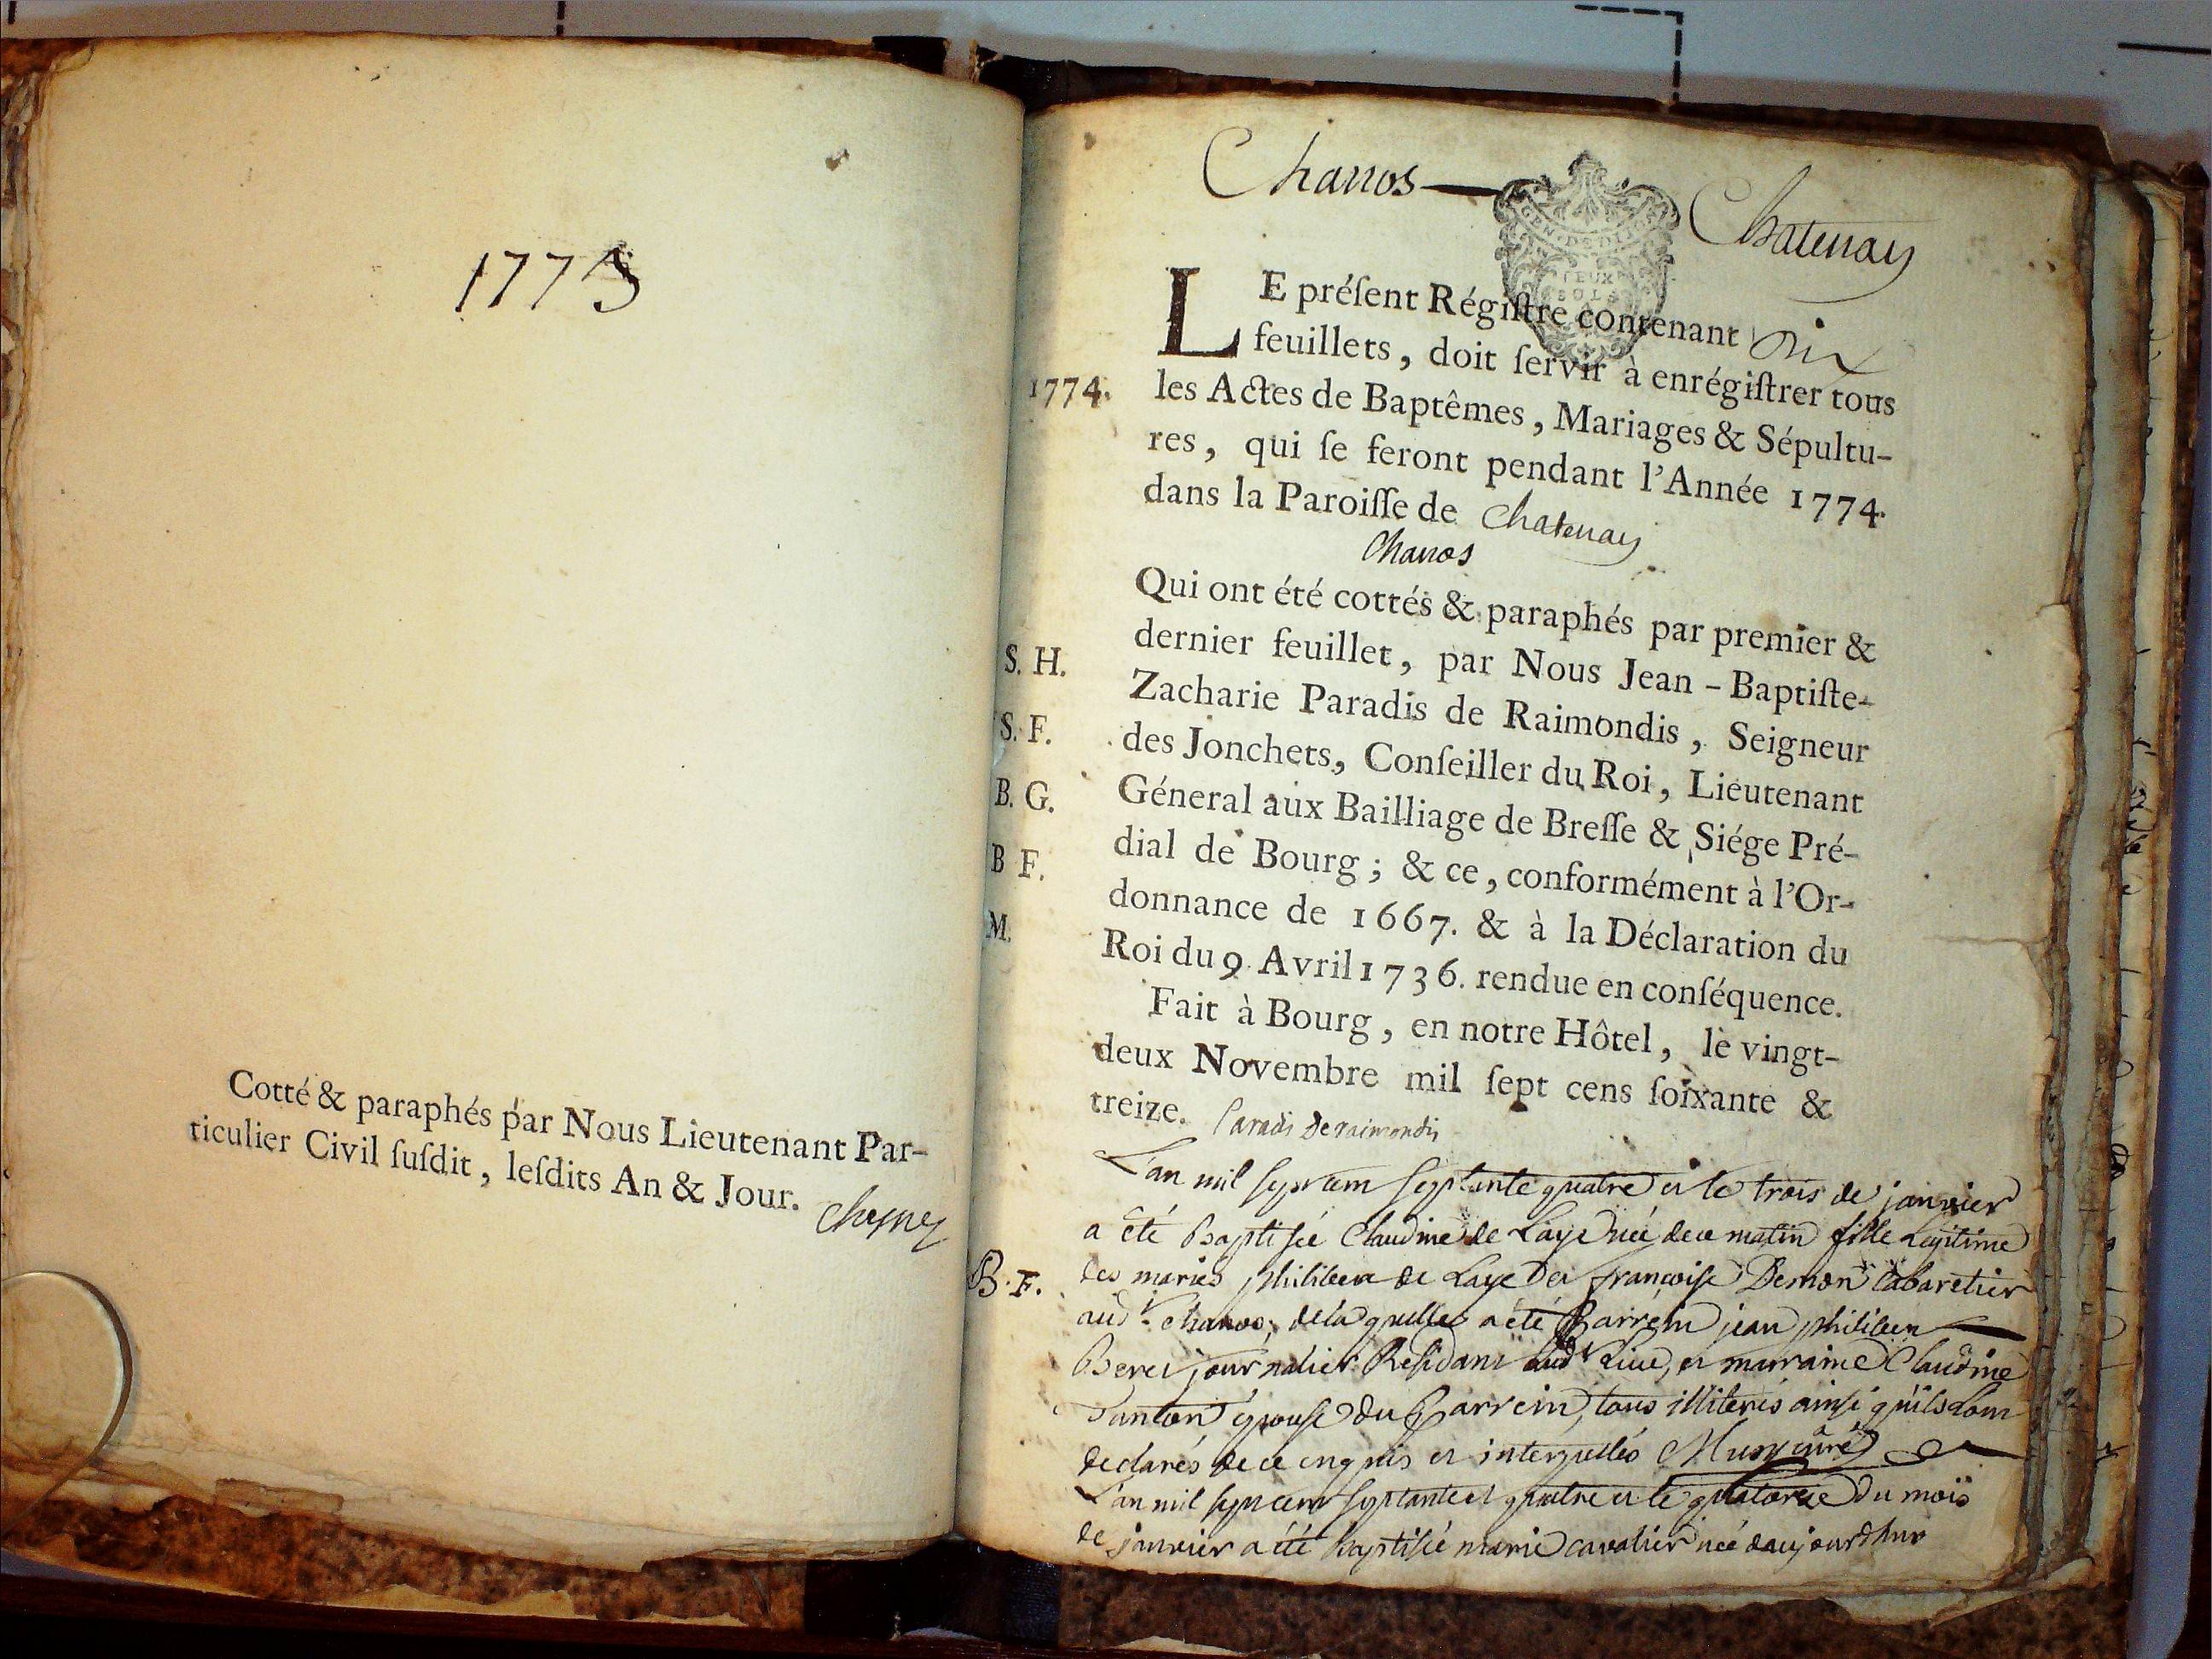 1773
Cotté & paraphés par Nous Lieutenant Par-
ticulier Civil ſuſdit, leſdits An & Jour.
Chanos — Chatenay
GEN. DE DIJON
DEUX
SOLS
LE préſent Régiſtre contenant six
feuillets, doit ſervir à enrégiſtrer tous
1774. les Actes de Baptêmes, Mariages & Sépultu-
res, qui ſe feront pendant l'Année 1774.
dans la Paroiſſe de Chatenay
Chanos
Qui ont été cottés & paraphés par premier &
S. H. dernier feuillet, par Nous Jean-Baptiſte-
Zacharie Paradis de Raimondis, Seigneur
S. F. des Jonchets, Conſeiller du Roi, Lieutenant
B. G. Géneral aux Bailliage de Breſſe & Siége Pré-
B F. dial de Bourg; & ce, conformément à l'Or-
donnance de 1667. & à la Déclaration du
M. Roi du 9. Avril 1736. rendue en conſéquence.
Fait à Bourg, en notre Hôtel, le vingt-
deux Novembre mil ſept cens ſoixante &
treize. Paradis Deraimondis
L'an mil sept cent septante quatre et le trois de janvier
a été Baptisée Claudine de Laye née de ce matin fille Legitime
B. F. des mariés philibert de Laye et françoise Demon Cabaretier
aud.t chanos, de laquelle a été Parrein jean philibert
journalier Residant aud.t Lieu, et marraine Claudine
épouse du Parrein, tous illiterés ainsi qu'ils Lont
declarés de ce enquis et interpellés curé
L'an mil sept cent septante et quatre et le quatorze du mois
de janvier a été baptisée marie cavalier née daujourdhuy